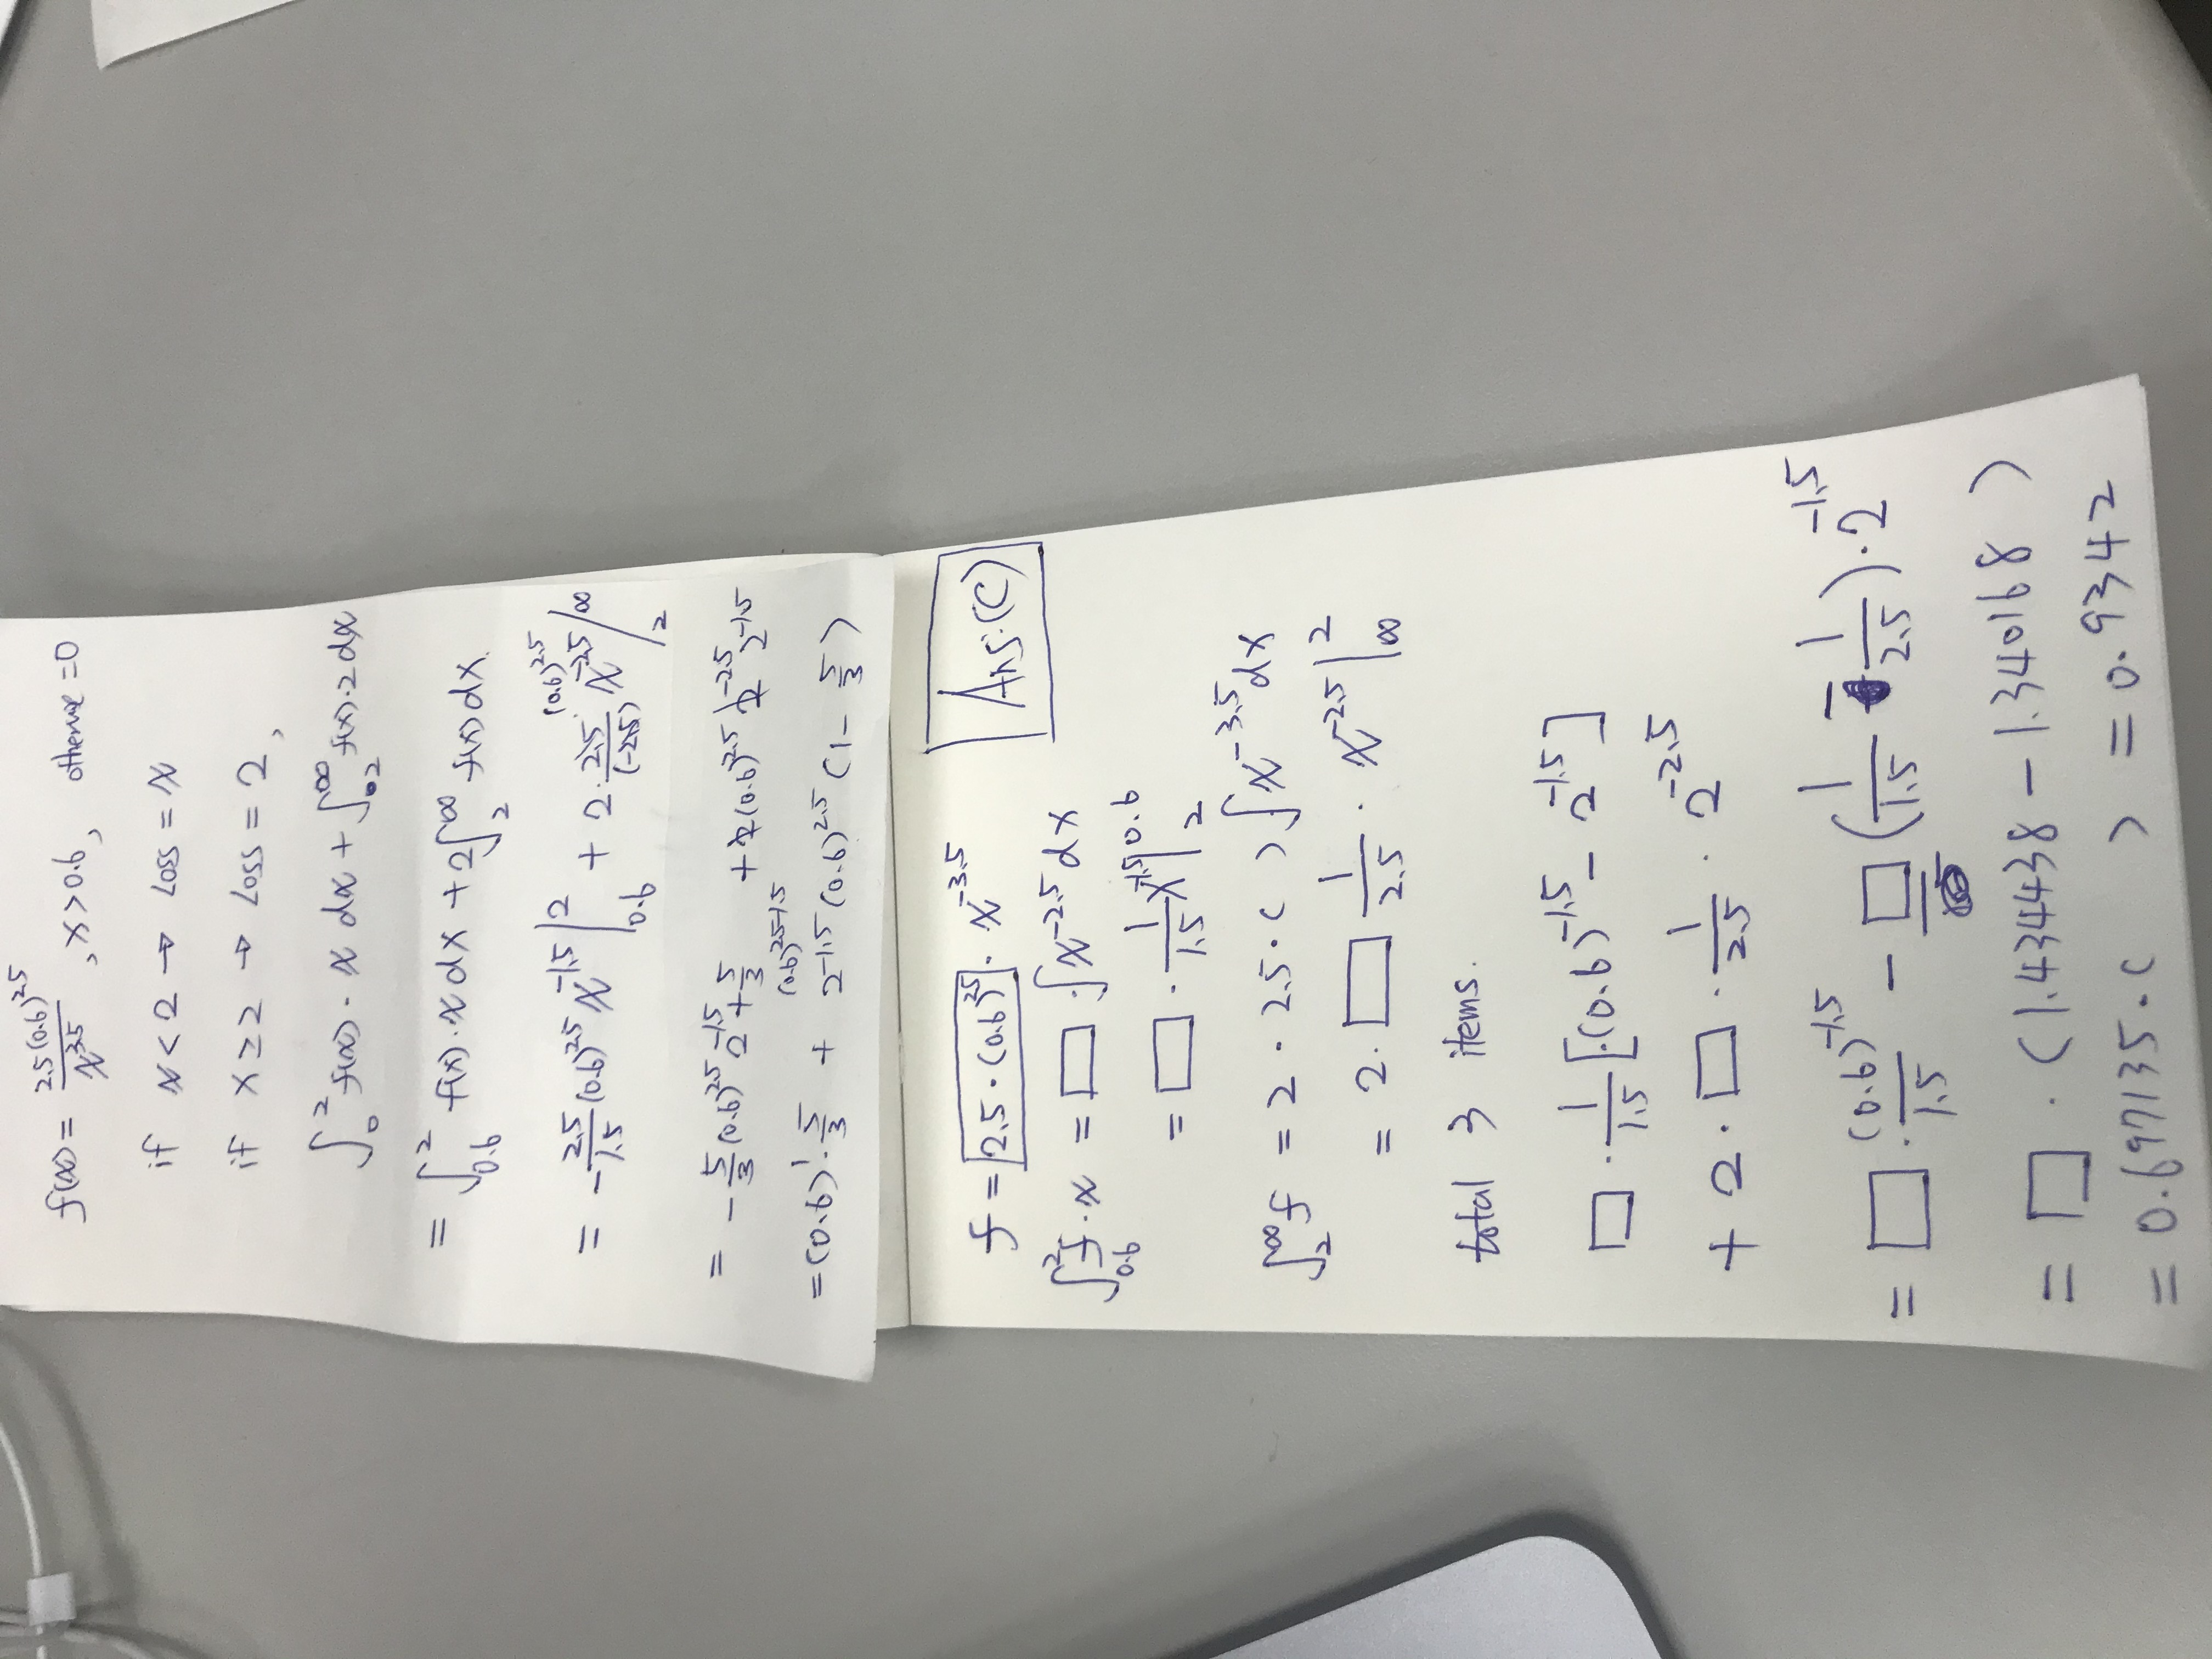 f(x) = 2.5(0.6)^2.5 / x^3.5 , x > 0.6, otherwise = 0
if x < 2 → Loss = x
if x ≥ 2 → Loss = 2,
∫_0^2 f(x) · x dx + ∫_2^∞ f(x) · 2 dx
= ∫_0.6^2 f(x) · x dx + 2∫_2^∞ f(x) dx
= - 2.5/1.5 (0.6)^2.5 x^-1.5 |_0.6^2 + 2 · 2.5/(-2.5) · (0.6)^2.5 x^-2.5 |_2^∞
= - 5/3 (0.6)^2.5 2^-1.5 + 5/3 (0.6)^2.5-1.5 + (0.6)^2.5 2^-1.5
= (0.6)^1 · 5/3 + 2^-1.5 (0.6)^2.5 (1 - 5/3)
Ans: (C)
f = 2.5 · (0.6)^2.5 · x^-3.5
∫_0.6^2 f · x = □ · ∫ x^-2.5 dx
= □ · 1/1.5 x^-1.5 |_2^0.6
∫_2^∞ f = 2 · 2.5 · ( ) ∫ x^-3.5 dx
= 2 · □ 1/2.5 · x^-2.5 |_∞^2
total 3 items.
□ · 1/1.5 [(0.6)^-1.5 - 2^-1.5]
+ 2 · □ · 1/2.5 · 2^-2.5
= □ · (0.6)^-1.5 / 1.5 - □ (1/1.5 - 1/2.5) · 2^-1.5
= □ · (1.434438 - 1.340168 )
= 0.697135 · ( ) = 0.9342